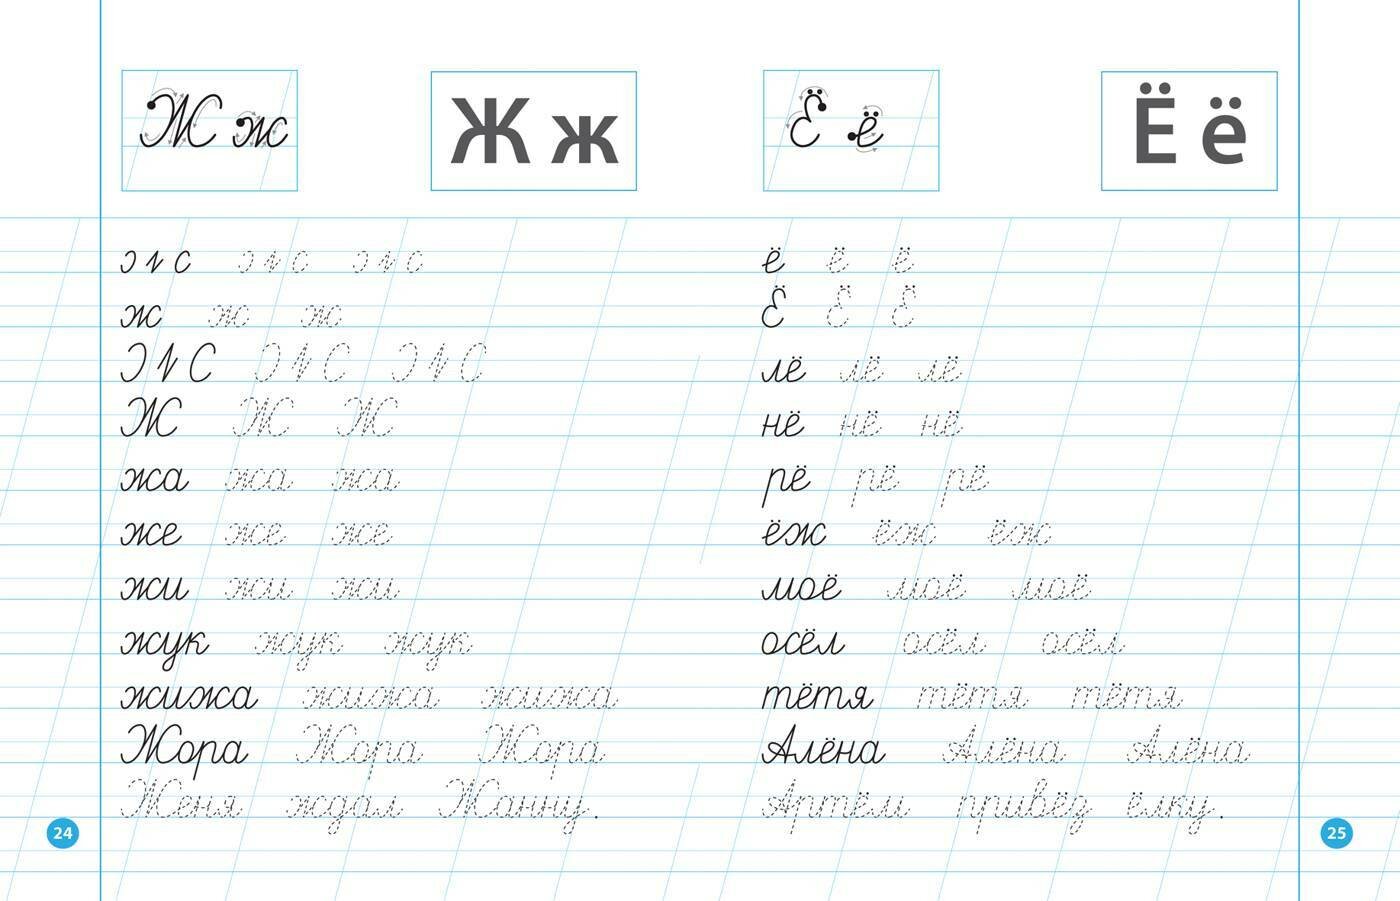 Ж ж
Ж ж
ж ж ж
Ж Ж Ж
жа жа жа
же же же
жи жи жи
жук жук жук
жижа жижа жижа
Жора Жора Жора
Женя ждал Жанну.
24
Ё ё
Ё ё
ё ё ё
Ё Ё Ё
лё лё лё
нё нё нё
рё рё рё
ёж ёж ёж
моё моё моё
осёл осёл осёл
тётя тётя тётя
Алёна Алёна Алёна
Артём привёз ёлку.
25